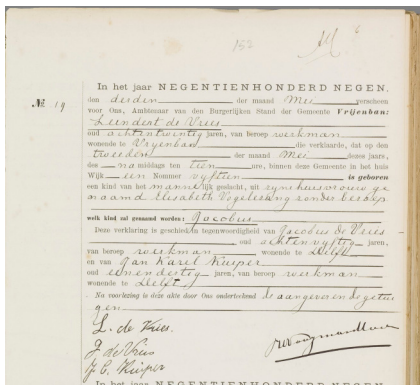 152
No. 19
In het jaar NEGENTIENHONDERD NEGEN,
den derden der maand Mei verscheen
voor Ons, Ambtenaar van den Burgerlijken Stand der Gemeente Vrijenban:
Leendert de Vries
oud achtentwintig jaren, van beroep werkman
wonende te Vryenban die verklaarde, dat op den
tweeden der maand Mei dezes jaars,
des na middags ten tien ure, binnen deze Gemeente in het huis
Wijk een Nommer vyftien is geboren
een kind van het mannelijk geslacht, uit zyne huisvrouw ge
naamd Elisabeth Vogelesang zonder beroep
welk kind zal genaamd worden: Jacobus
Deze verklaring is geschied in tegenwoordigheid van Jacobus de Vries
oud achtenvyftig jaren,
van beroep werkman wonende te Delft
en van Jan Karel Kuiper
oud eenendertig jaren, van beroep werkman
wonende te Delft
Na voorlezing is deze akte door Ons onderteekend de aangever en de getui
gen
L. de Vries.
J de Vries
J. C. Kuiper
In het jaar NEGENTIENHONDERD NEGEN